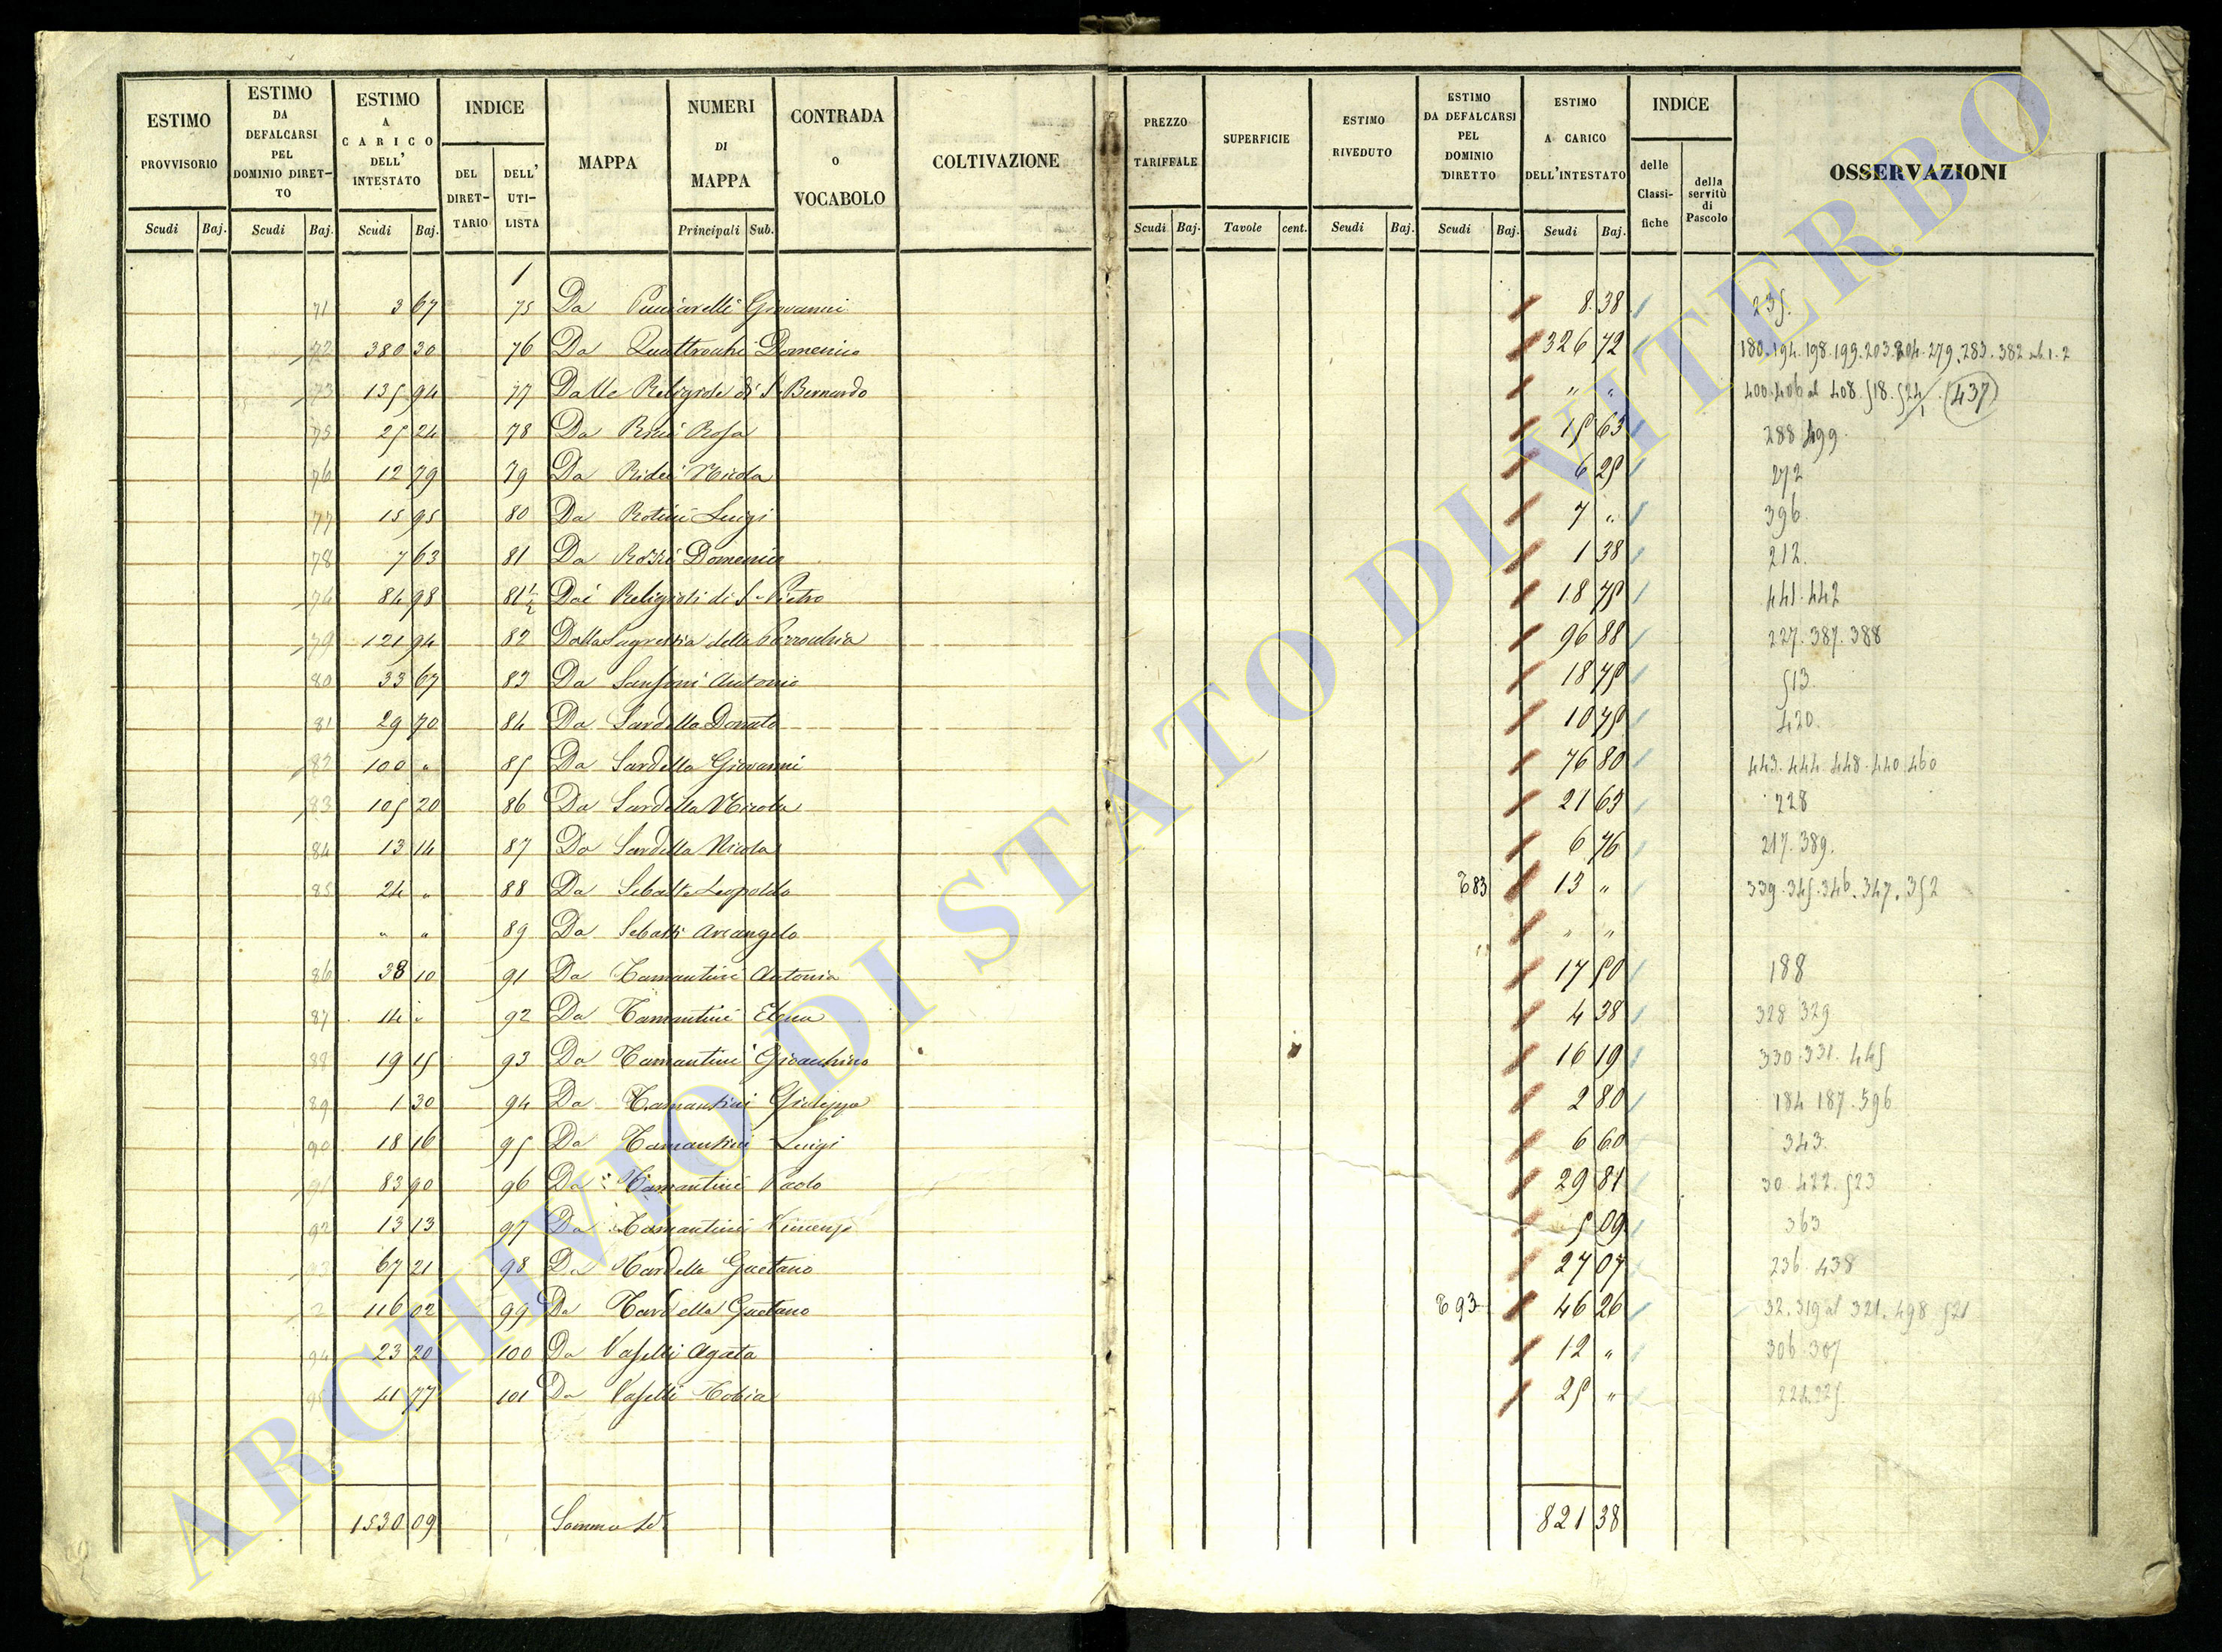 ESTIMO PROVVISORIO | ESTIMO DA DEFALCARSI PEL DOMINIO DIRETTO | ESTIMO A CARICO DELL' INTESTATO | INDICE | MAPPA | NUMERI DI MAPPA | CONTRADA O VOCABOLO | COLTIVAZIONE | PREZZO TARIFFALE | SUPERFICIE | ESTIMO RIVEDUTO | ESTIMO DA DEFALCARSI PEL DOMINIO DIRETTO | ESTIMO A CARICO DELL'INTESTATO | INDICE | OSSERVAZIONI
DEL DIRETTARIO | DELL' UTILISTA | delle Classifiche | della servitù di Pascolo
Scudi Baj. Scudi Baj. Scudi Baj. Principali Sub. Scudi Baj. Tavole cent. Scudi Baj. Scudi Baj. Scudi Baj.
1
71 3 67 75 Da Pucciarelli Giovanni 8.38 235.
72 380 30 76 Da Quattrocchi Domenico 326 72 180.194.198.199.203.204.279.283.382 sub.1.2
73 135 94 77 Dalle Religiose di S. Bernardo " " 400.406 al 408.518.524 (437)
75 25 24 78 Da Ricci Rosa 15 63 288 499
76 12 79 79 Da Ridei Nicola 6 25 272
77 15 95 80 Da Rotini Luigi 7 " 396
78 7 63 81 Da Rossi Domenico 1 38 212.
74 84 98 81½ Dai Religiosi di S. Pietro 18 75 441.442
79 121 94 82 Dalla Sagrestia della Parrocchia 96 88 227.387.388
80 33 67 83 Da Sansoni Antonio 18 75 513
81 29 70 84 Da Sardella Donato 10 75 420.
82 100 " 85 Da Sardella Giovanni 76 80 443.444.448.440 460
83 105 20 86 Da Sardella Nicola 21 63 228
84 13 14 87 Da Sardella Nicola 6 76 217.389.
85 24 " 88 Da Sebasti Leopoldo 83 13 " 339.345.346.347.352
" " 89 Da Sebasti Arcangelo " "
86 38 10 91 Da Tamantini Antonio 17 50 188
87 14 " 92 Da Tamantini Elena 4 38 328 329
88 19 15 93 Da Tamantini Gioacchino 16 19 330.331.445
89 1 30 94 Da Tamantini Giuseppe 2 80 184 187.596
90 18 16 95 Da Tamantini Luigi 6 60 343.
91 83 90 96 Da Tamantini Paolo 29 81 30.422.523
92 13 13 97 Da Tamantini Vincenzo 5 09 363
93 67 21 98 Da Tardella Gaetano 27 07 236.438
2 116 02 99 Da Tardella Gaetano 93 46 26 32.319 al 321.498.521
94 23 20 100 Da Vaselli Agata 12 " 306.307
95 41 77 101 Da Vaselli Tobia 25 " 224.225.
1530 09 Somma 821 38
ARCHIVIO DI STATO DI VITERBO